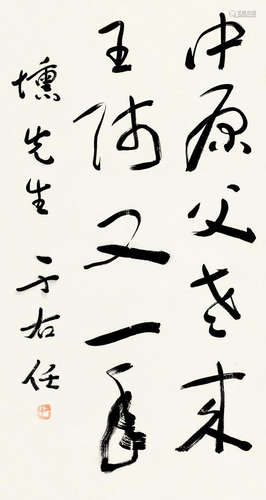 中原父老来
王师又一年
壎先生 于右任